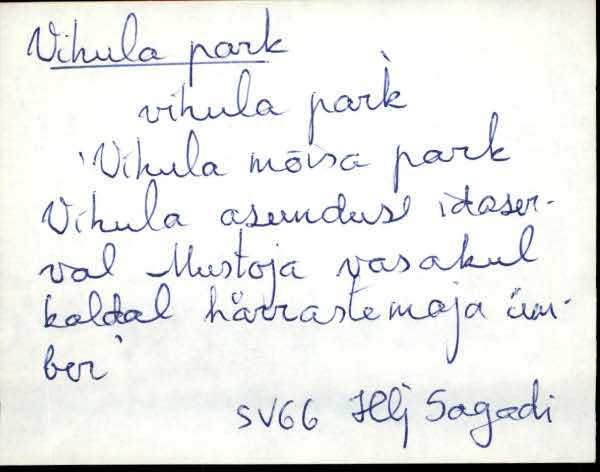 Vihula park
vihula park̀
'Vihula mõisa park
Vihula asunduse idaser-
val Mustoja vasakul
kaldal härrastemaja üm-
ber'
SV66 Hlj Sagadi